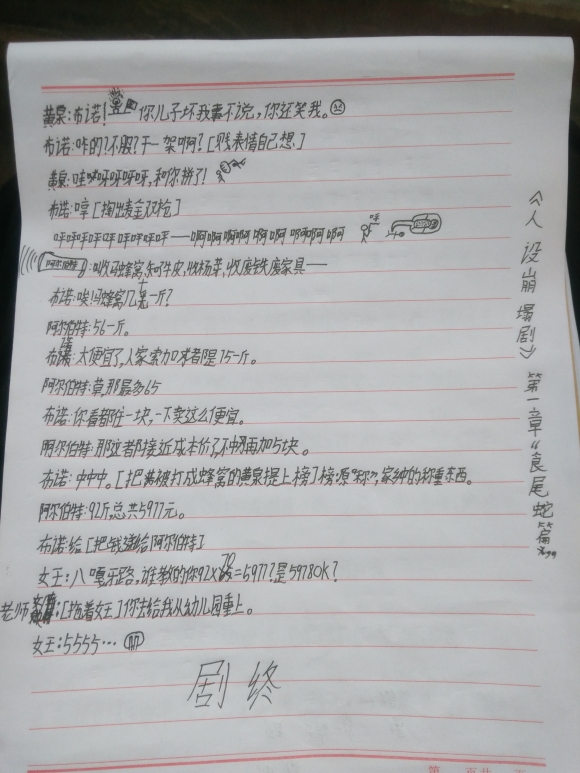 黄泉:布诺!你儿子坏我事不说,你还笑我。
布诺:咋的?不服?干一架啊?[贱表情自己想]
黄泉:哇呀呀呀呀呀,和你拼了!
布诺:哼[掏出鎏金双枪]
呯呯呯呯呯呯呯呯呯——啊啊啊啊啊啊啊啊啊啊 呯
阿尔伯特:收马蜂窝,知了皮,收杨菜,收废铁废家具——
布诺:唉!马蜂窝几十一斤?
阿尔伯特:56一斤。
布诺:太便宜了,人家索加求都是75一斤。
阿尔伯特:莫那最多65
布诺:你看都住一块,一下卖这么便宜。
阿尔伯特:那这都接近成本价了,不中再加5块。
布诺:中中中。[把满被打成蜂窝的黄泉提上榜]榜:原"称",家种的称重东西。
阿尔伯特:92斤,总共5977元。
布诺:给[把蛾递给阿尔伯特]
女王:八嘎牙路,谁教的你92X70=5977?是5978OK?
老师:[拖着女王]你去给我从幼儿园重上。
女王:5555…
剧终
《人设崩塌剧》第一章"食尾蛇"篇